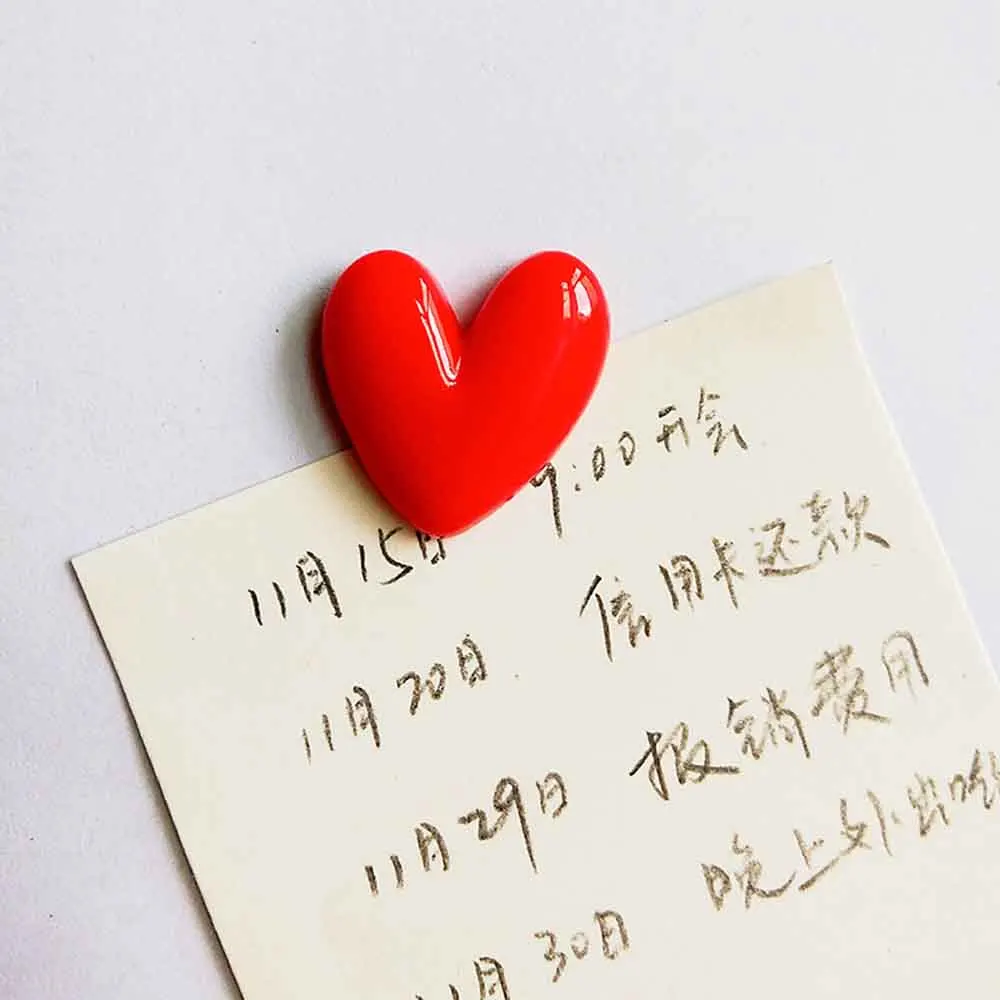 11月15日 9:00开会
11月20日 信用卡还款
11月29日 报销费用
11月30日 晚上外出